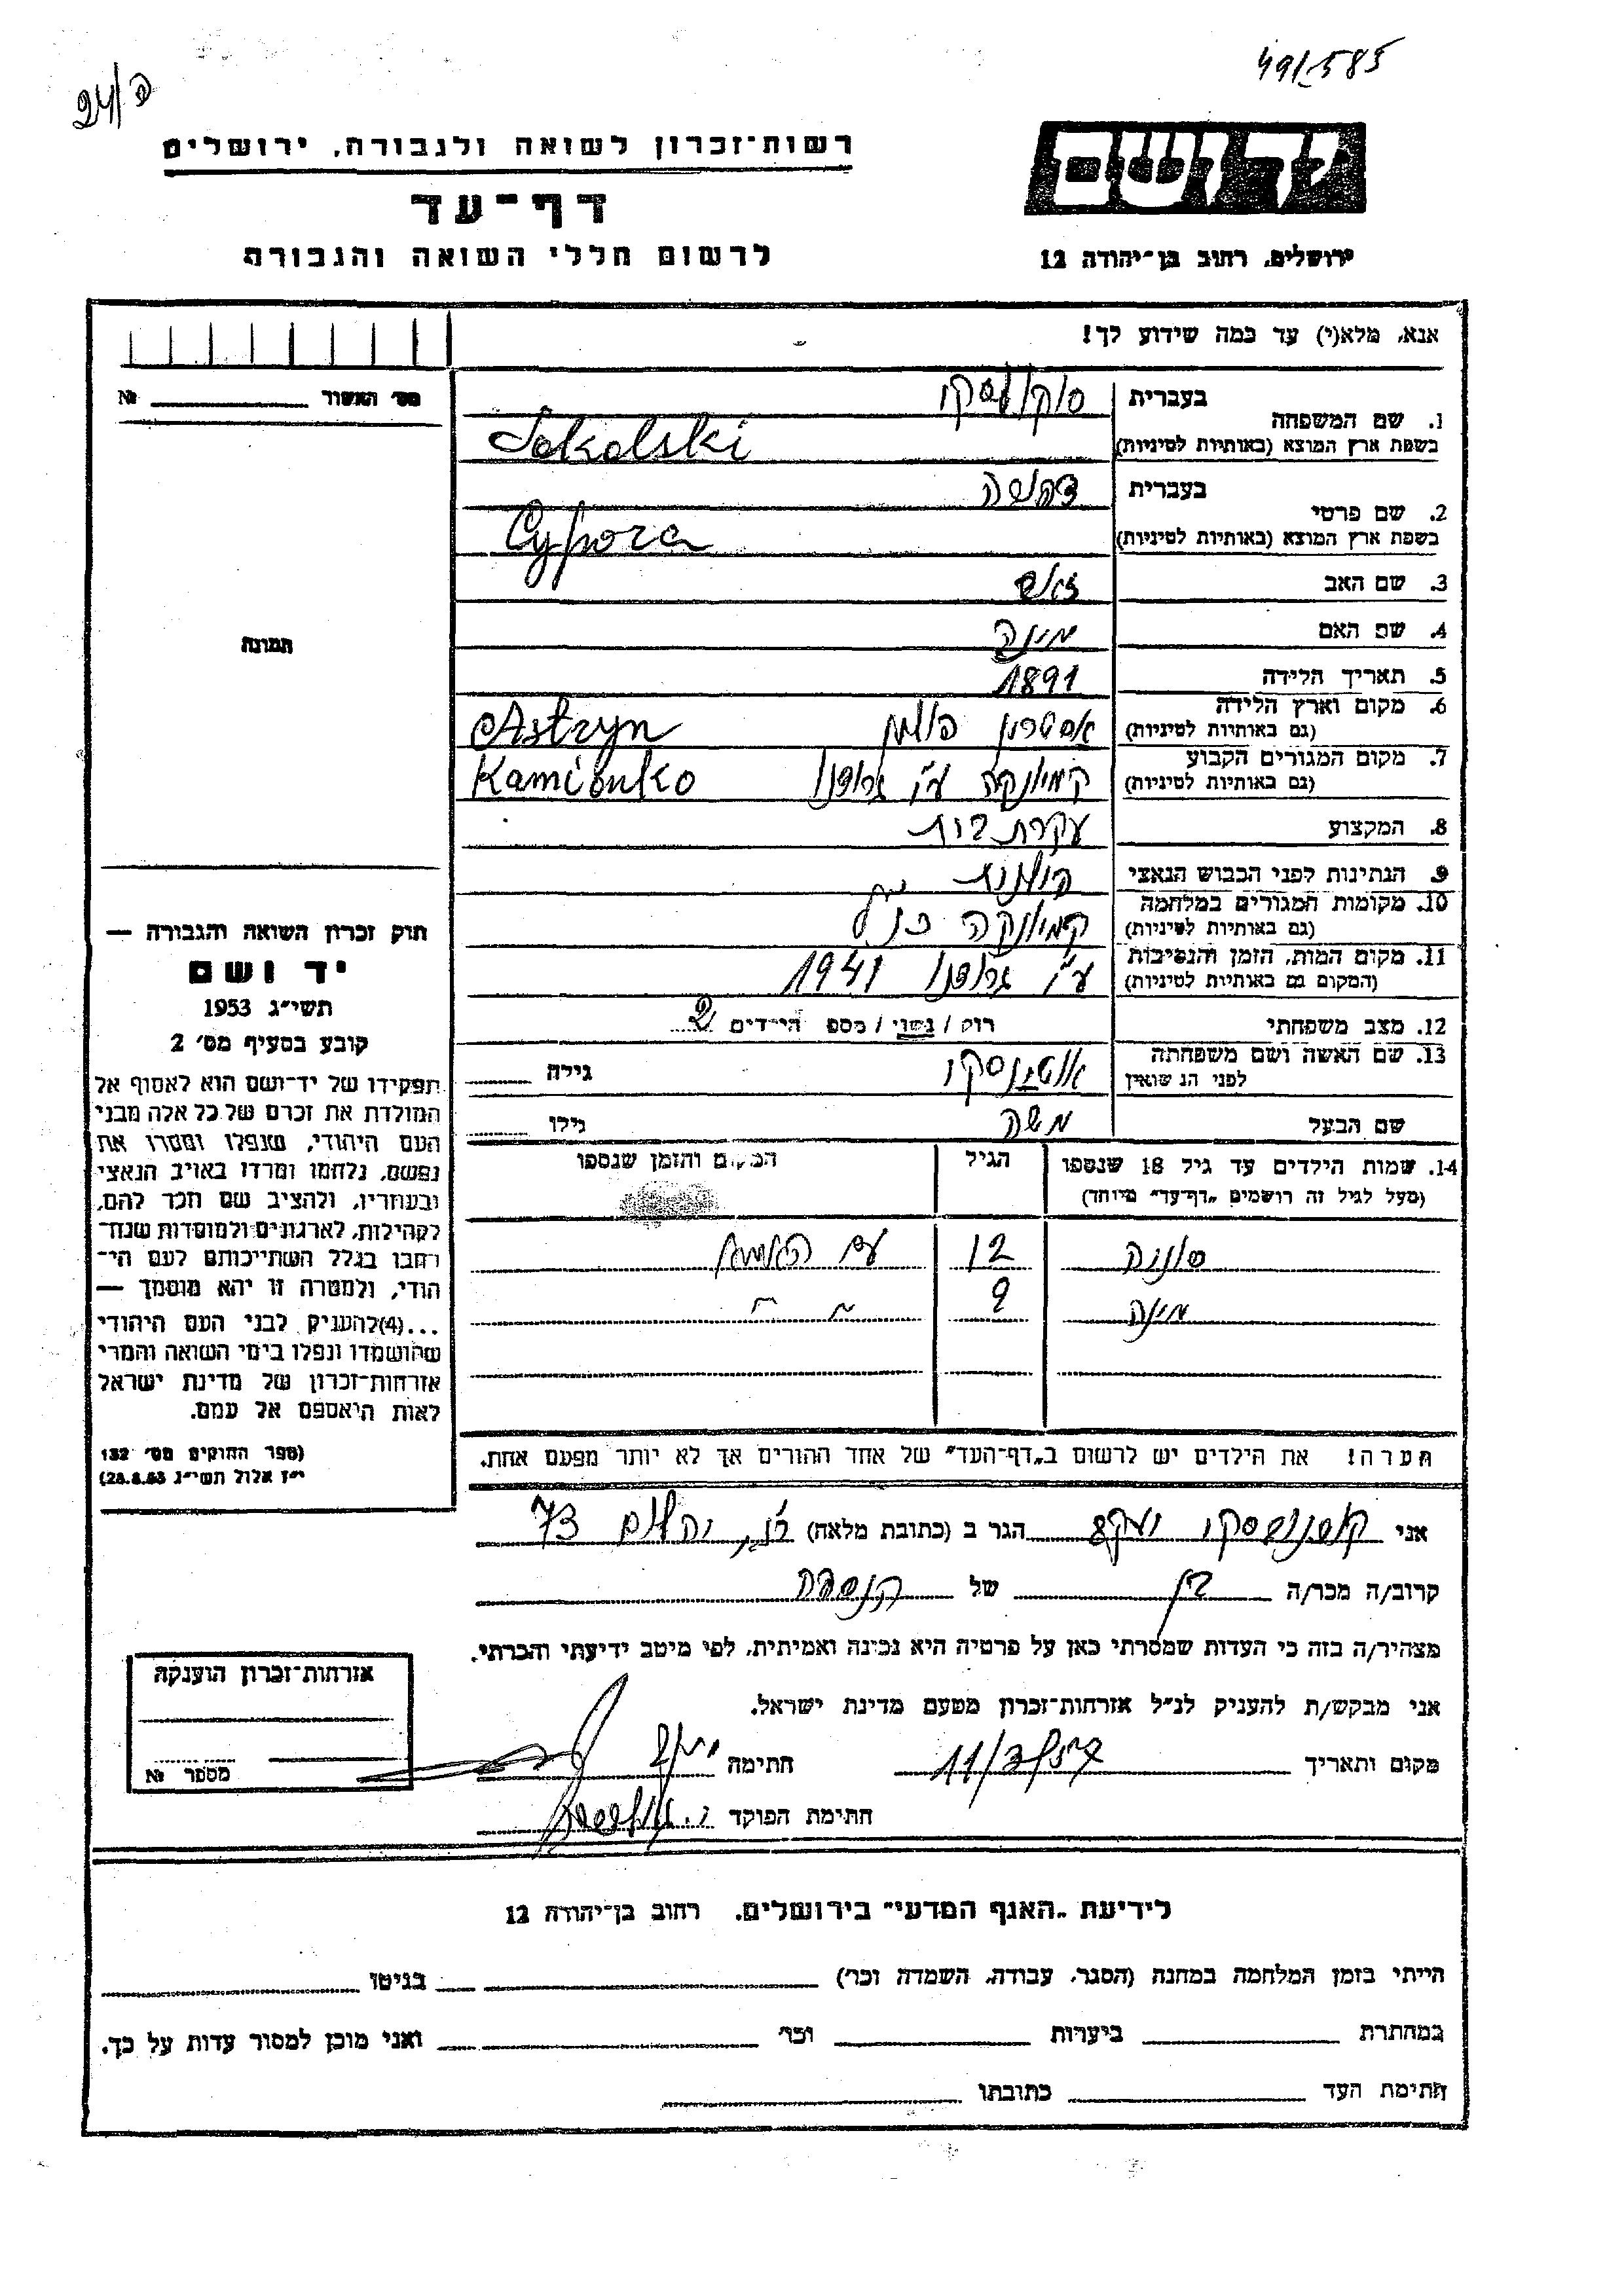 49/585
24/ פ
יד ושם
רשות־זכרון לשואה ולגבורה, ירושלים
דף־עד
לרשום חללי השואה והגבורה
ירושלים, רחוב בן־יהודה 12
אנא, מלא(י) עד כמה שידוע לך!
מס׳ האשור № 
1. שם המשפחה
בעברית סוקולסקי
בשפת ארץ המוצא (באותיות לטיניות) Sokolski
2. שם פרטי
בעברית
בשפת ארץ המוצא (באותיות לטיניות) Cypora
3. שם האב זאב
4. שם האם מינה
5. תאריך הלידה 1891
6. מקום וארץ הלידה
(גם באותיות לטיניות) אסטרין פולין Astryn
7. מקום המגורים הקבוע
(גם באותיות לטיניות) קמיונקה ע״י גרודנו Kamionko
8. המקצוע עקרת בית
9. הנתינות לפני הכבוש הנאצי פולנית
10. מקומות המגורים במלחמה
(גם באותיות לטיניות) קמיונקה כנ״ל
11. מקום המות, הזמן והנסיבות
(המקום גם באותיות לטיניות) ע״י גרודנו 1941
12. מצב משפחתי רווק / נשוי / מספ הילדים 2
13. שם האשה ושם משפחתה
לפני הנשואין גילה
שם הבעל משה גילו
14. שמות הילדים עד גיל 18 שנספו הגיל המקום והזמן שנספו
(מעל לגיל זה רושמים „דף־עד” מיוחד)
סוניה 12 עם
מינה 9 " "
הערה! את הילדים יש לרשום ב„דף־העד” של אחד ההורים אך לא יותר מפעם אחת.
תמונה
חוק זכרון השואה והגבורה —
יד ושם
תשי״ג 1953
קובע בסעיף מס׳ 2
תפקידו של יד־ושם הוא לאסוף אל
המולדת את זכרם של כל אלה מבני
העם היהודי, שנפלו ומסרו את
נפשם, נלחמו ומרדו באויב הנאצי
ובעוזריו, ולהציב שם וזכר להם,
לקהילות, לארגונים ולמוסדות שנח־
רבו בגלל השתייכותם לעם הי־
הודי, ולמטרה זו יהא מוסמך —
...(4)להעניק לבני העם היהודי
שהושמדו ונפלו בימי השואה והמרי
אזרחות־זכרון של מדינת ישראל
לאות היאספם אל עמם.
(ספר החוקים מס׳ 132
י״ז אלול תשי״ג 28.8.53)
אני הגר ב (כתובת מלאה) 73
קרוב/ה מכר/ה בן של הנספה
מצהיר/ה בזה כי העדות שמסרתי כאן על פרטיה היא נכונה ואמיתית, לפי מיטב ידיעתי והכרתי.
אני מבקש/ת להעניק לנ״ל אזרחות־זכרון מטעם מדינת ישראל.
מקום ותאריך חתימה
חתימת הפוקד
אזרחות־זכרון הוענקה
מספר №
לידיעת „האגף המדעי” בירושלים, רחוב בן־יהודה 12
הייתי בזמן המלחמה במחנה (הסגר, עבודה, השמדה וכר׳) בגיטו
במחתרת ביערות וכר׳ ואני מוכן למסור עדות על כך.
חתימת העד כתובתו